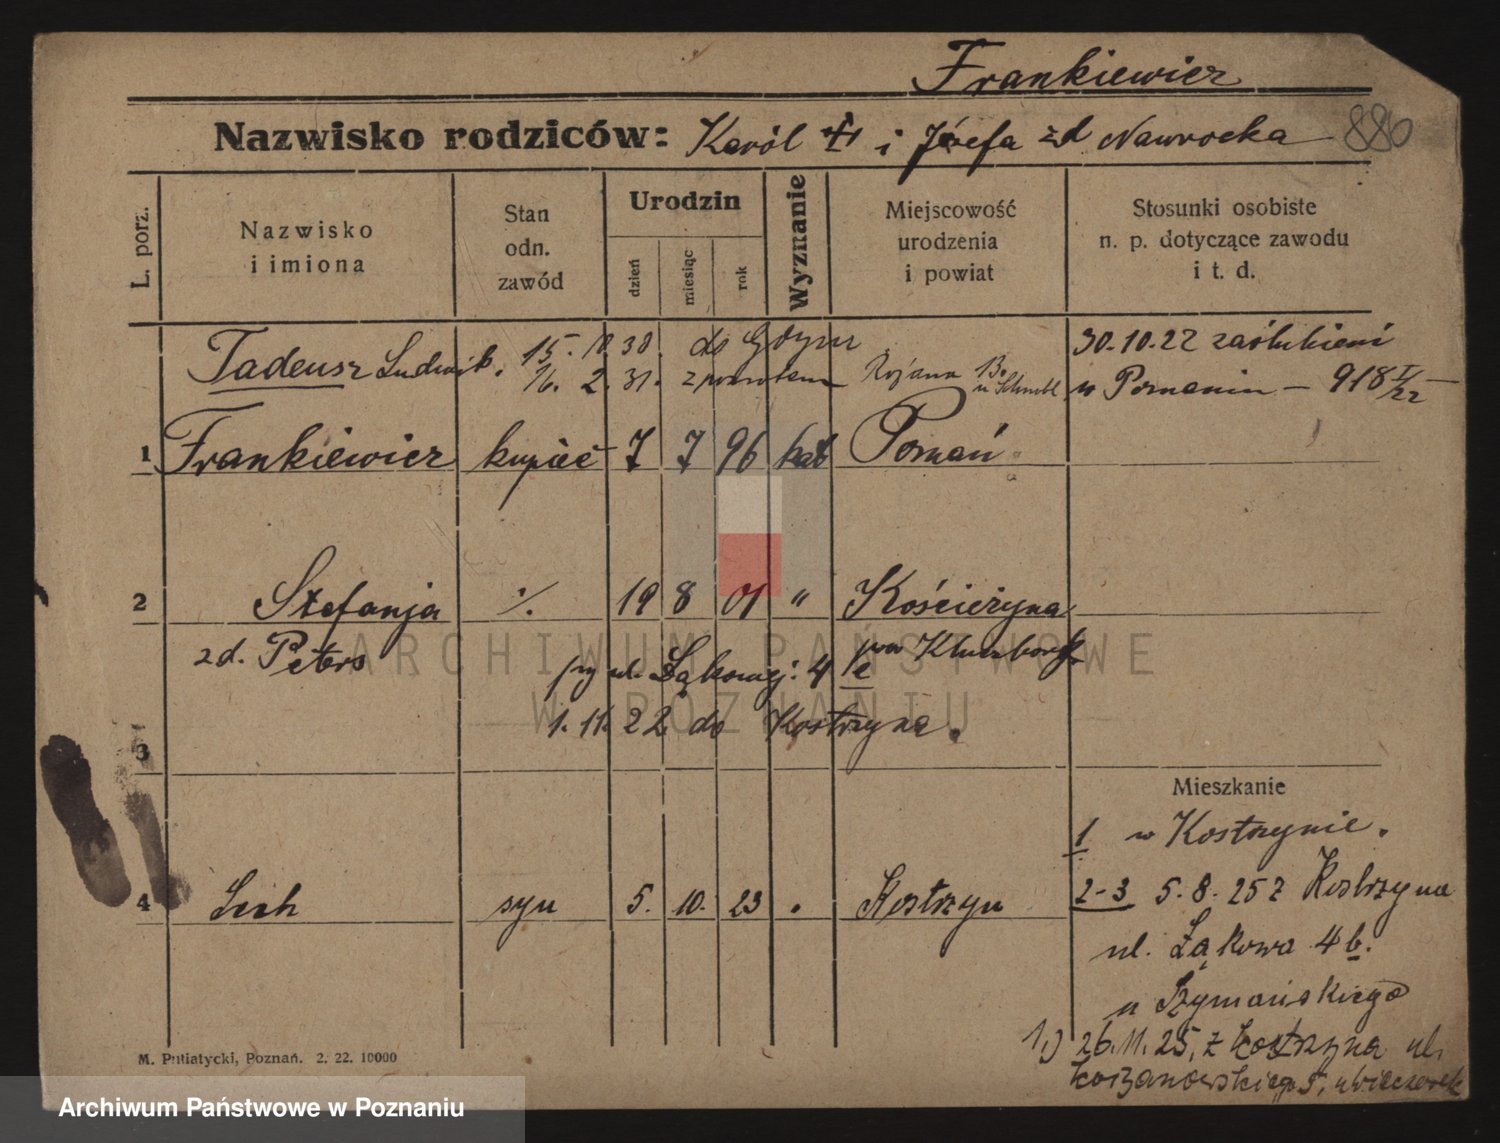 Frankiewicz
Nazwisko rodziców: Karól i Józefa zd Nawrocka 880
L. porz.
Nazwisko
i imiona
Stan
odn.
zawód
Urodzin
dzień
miesiąc
rok
Wyznanie
Miejscowość
urodzenia
i powiat
Stosunki osobiste
n. p. dotyczące zawodu
i t. d.
Tadeusz Ludwik. 15. 10. 30. do Gdyni 30.10.22 zaślubieni
16. 2. 31. z powrotem 13. w Poznaniu – 918 I/22 –
1 Frankiewicz kupiec 7 7 96 kat Poznań
2 Stefanja ./. 19 8 01 " Kościeżyna
zd. Peters przy ul. Łąkowej 4 pow
1. 11. 22 do Kostrzyna.
3
Mieszkanie
1 w Kostrzynie.
4 Lech syn 5. 10. 23 . Kostrzyn
2-3 5.8.25 z Kostrzyna
ul. Łąkowa 4 b.
u Szymańskiego
1.) 26.11.25, z Kostrzyna ul.
5, u Wieczorek
M. Putiatycki, Poznań. 2. 22. 10000
ARCHIWUM PAŃSTWOWE
W POZNANIU
Archiwum Państwowe w Poznaniu